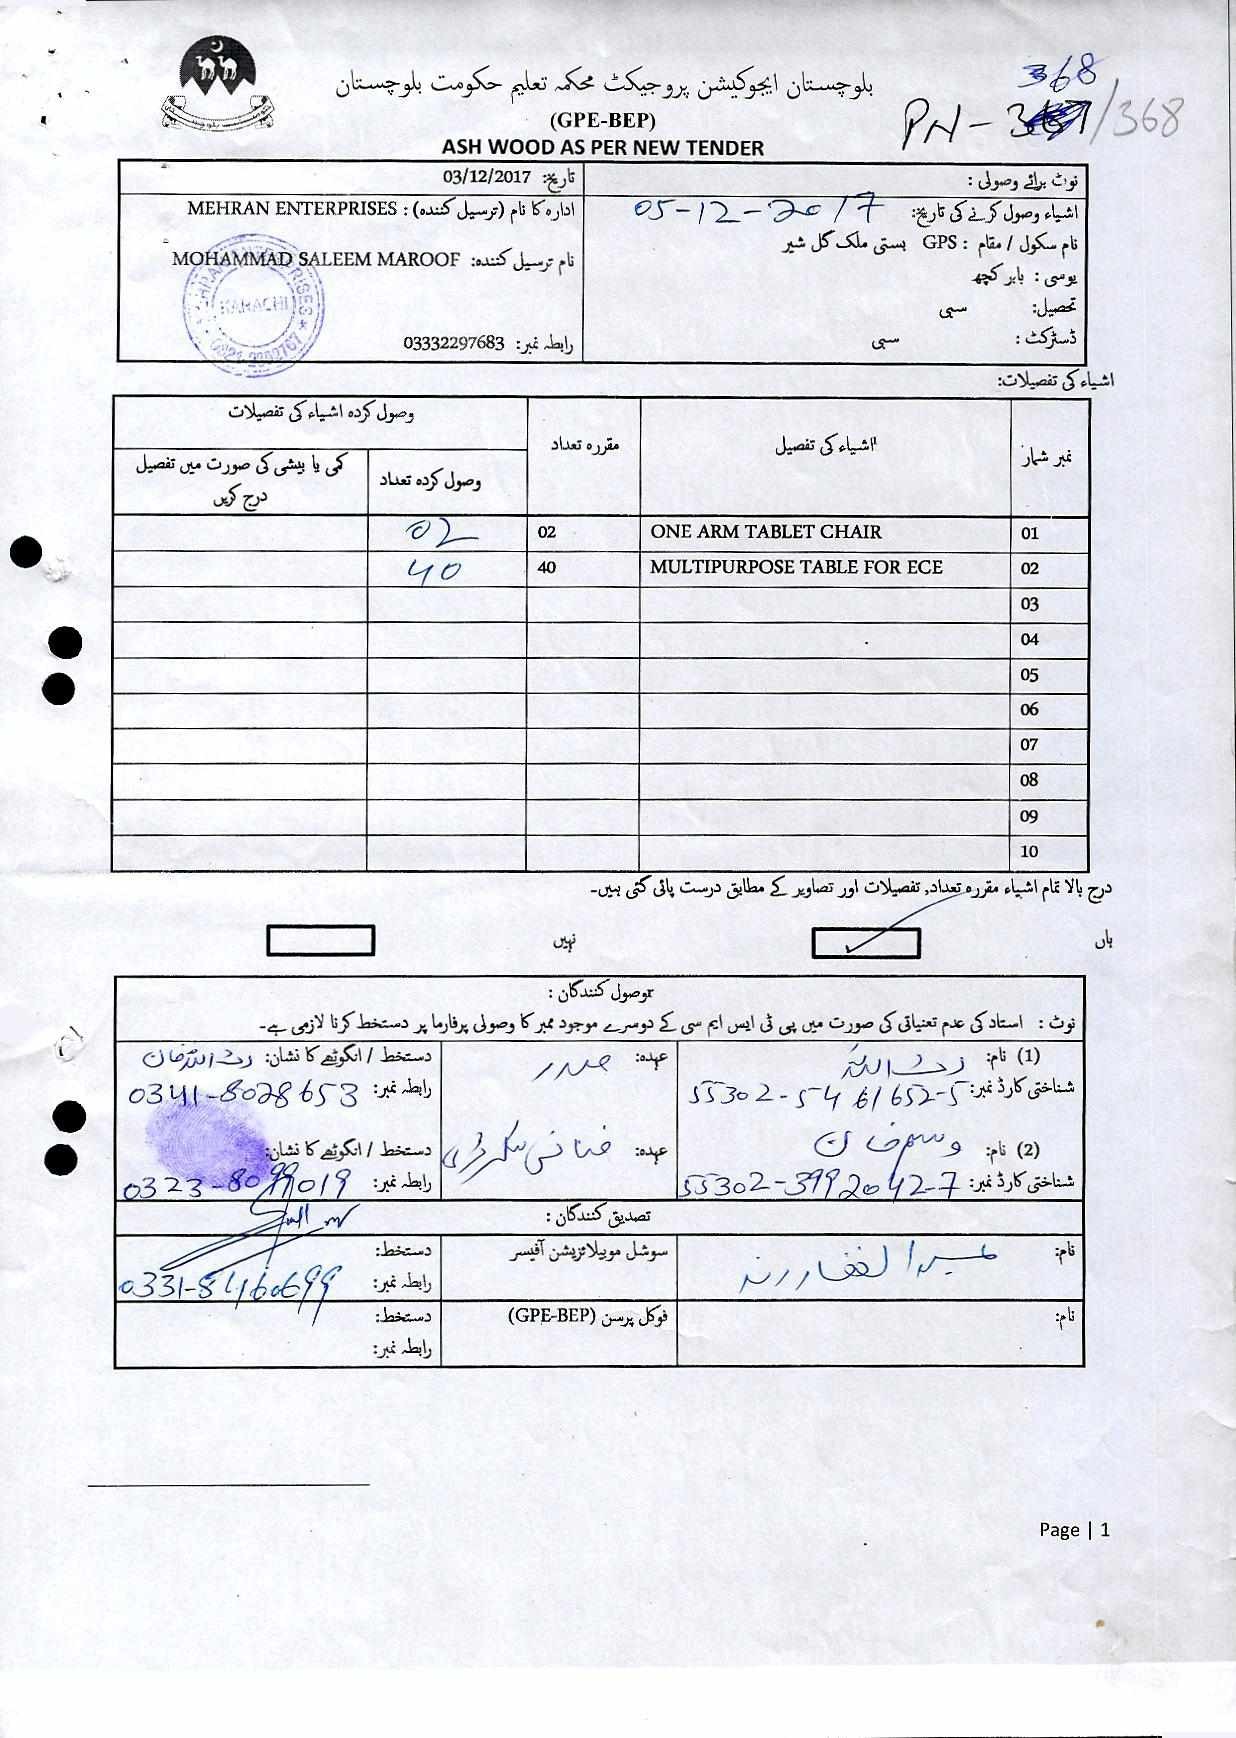 بلوچستان ایجوکیشن پروجیکٹ محکمہ تعلیم حکومت بلوچستان
368
(GPE-BEP)
PN - 367/368
ASH WOOD AS PER NEW TENDER
نوٹ برائے وصولی :
تاریخ: 03/12/2017
اشیاء وصول کرنے کی تاریخ: 05-12-2017
ادارہ کا نام (ترسیل کنندہ) : MEHRAN ENTERPRISES
نام سکول / مقام : GPS بستی ملک گل شیر
نام ترسیل کنندہ: MOHAMMAD SALEEM MAROOF
یوسی : بابر کچھ
KARACHI
تحصیل: سبی
ڈسٹرکٹ : سبی
رابطہ نمبر: 03332297683
اشیاء کی تفصیلات:
نمبر شمار اشیاء کی تفصیل مقررہ تعداد وصول کردہ اشیاء کی تفصیلات
وصول کردہ تعداد کمی یا بیشی کی صورت میں تفصیل درج کریں
01 ONE ARM TABLET CHAIR 02 02
02 MULTIPURPOSE TABLE FOR ECE 40 40
03
04
05
06
07
08
09
10
درج بالا تمام اشیاء مقررہ تعداد, تفصیلات اور تصاویر کے مطابق درست پائی گئی ہیں۔
ہاں نہیں
وصول کنندگان :
نوٹ : استاد کی عدم تعنیاتی کی صورت میں پی ٹی ایس ایم سی کے دوسرے موجود ممبر کا وصولی پرفارما پر دستخط کرنا لازمی ہے۔
(1) نام: عہدہ: صدر دستخط / انگوٹھے کا نشان:
شناختی کارڈ نمبر: 55302-5461652-5 رابطہ نمبر: 0341-8028653
(2) نام: وسیم خان عہدہ: دستخط / انگوٹھے کا نشان:
شناختی کارڈ نمبر: 55302-3992042-7 رابطہ نمبر: 0323-8099019
تصدیق کنندگان :
نام: عبدالغفار رند سوشل موبیلائزیشن آفیسر دستخط:
رابطہ نمبر: 0331-8460699
نام: فوکل پرسن (GPE-BEP) دستخط:
رابطہ نمبر:
Page | 1